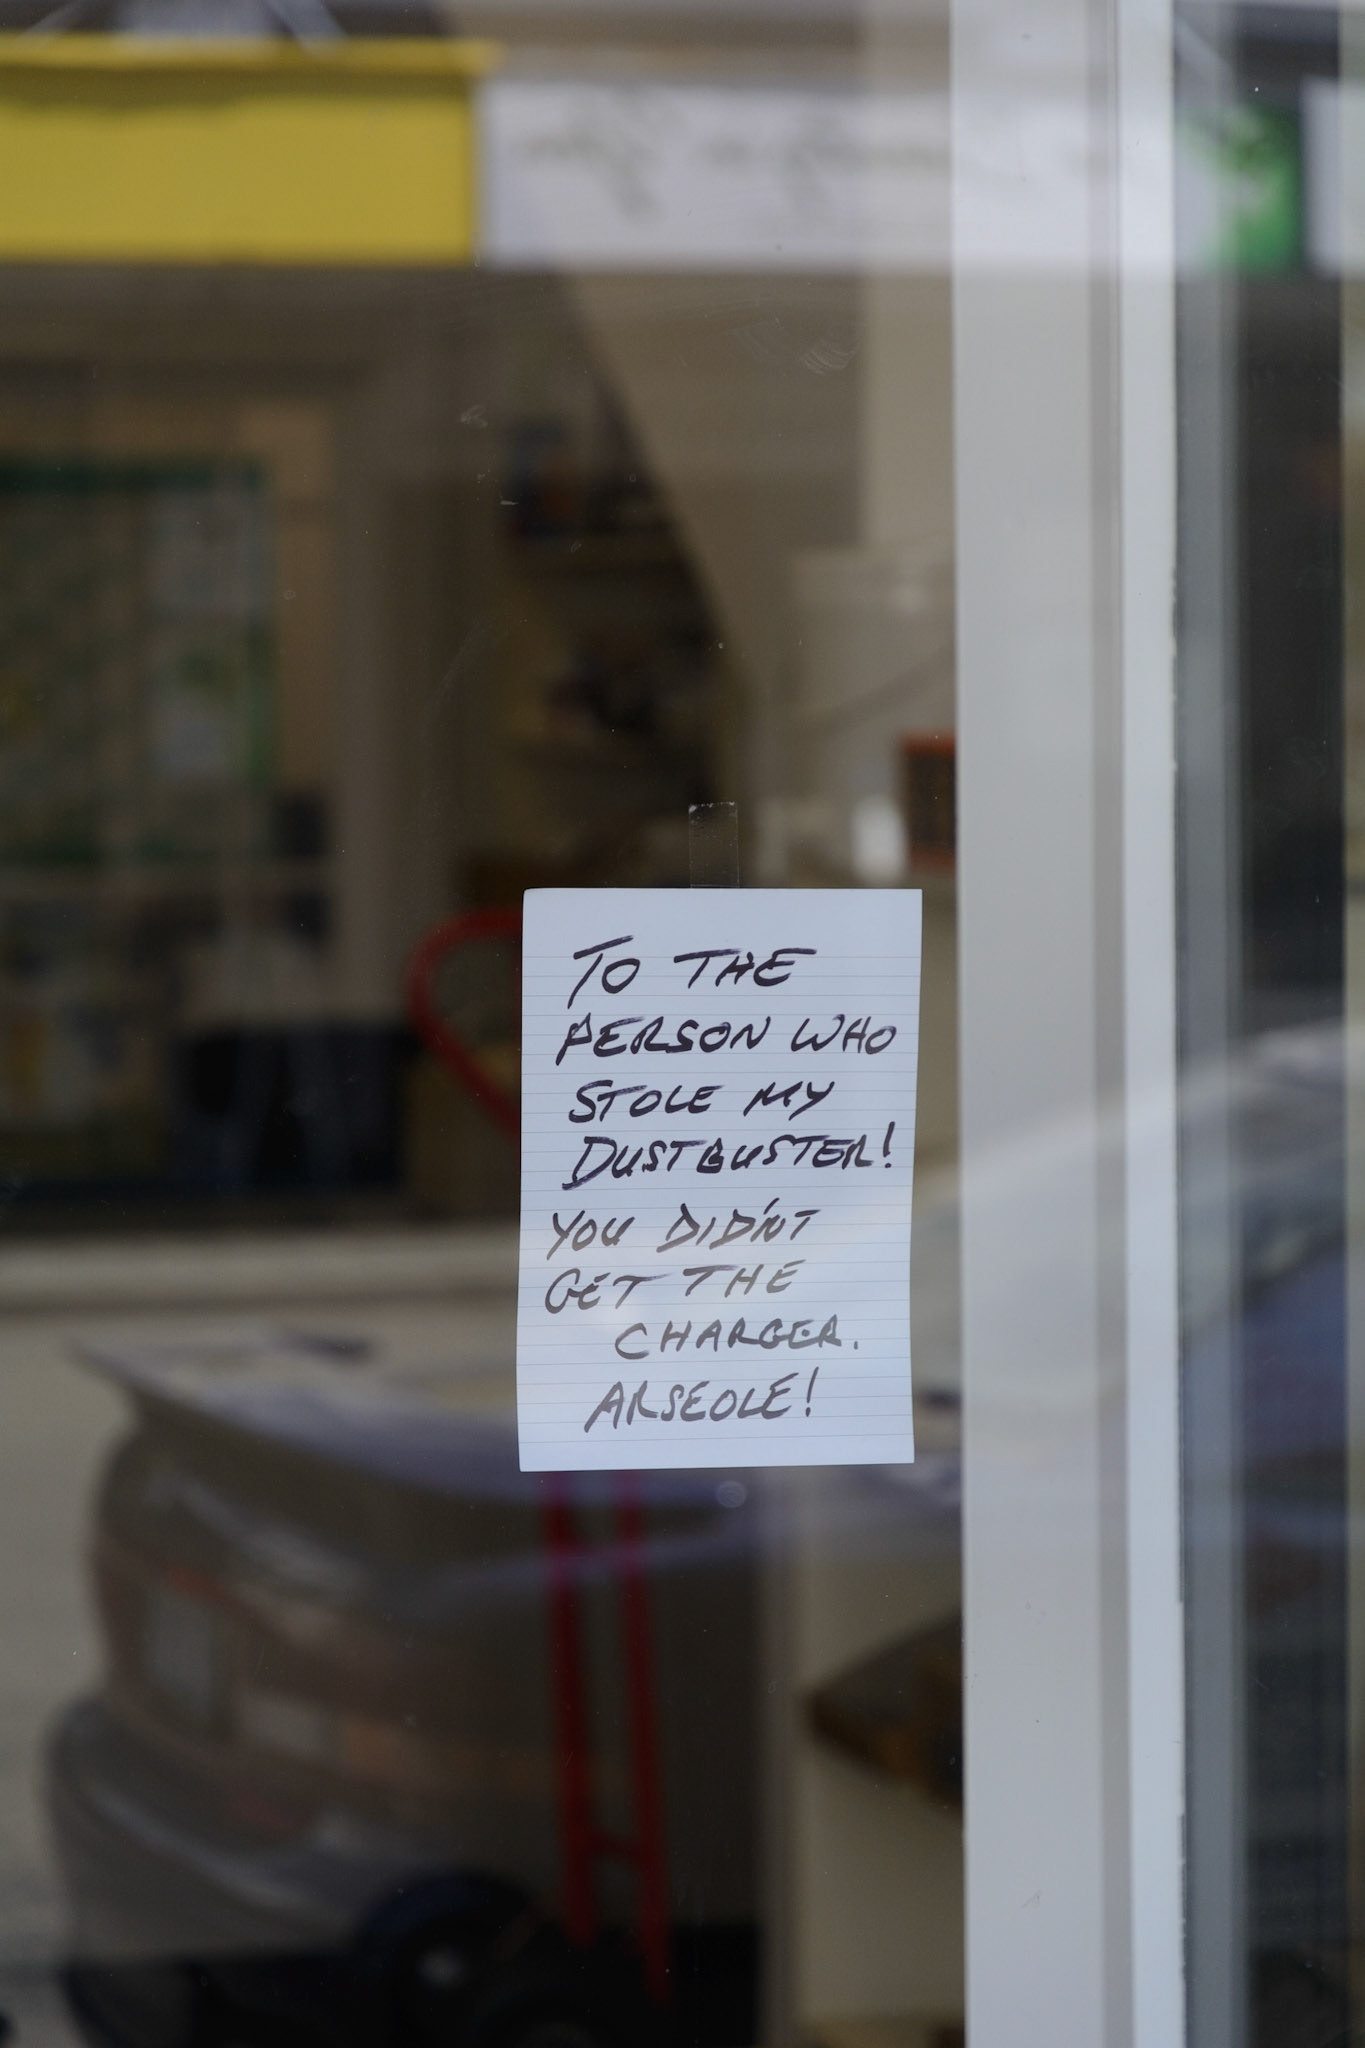 TO THE
PERSON WHO
STOLE MY
DUSTBUSTER!
YOU DID'NT
GET THE
CHARGER.
ARSEOLE!